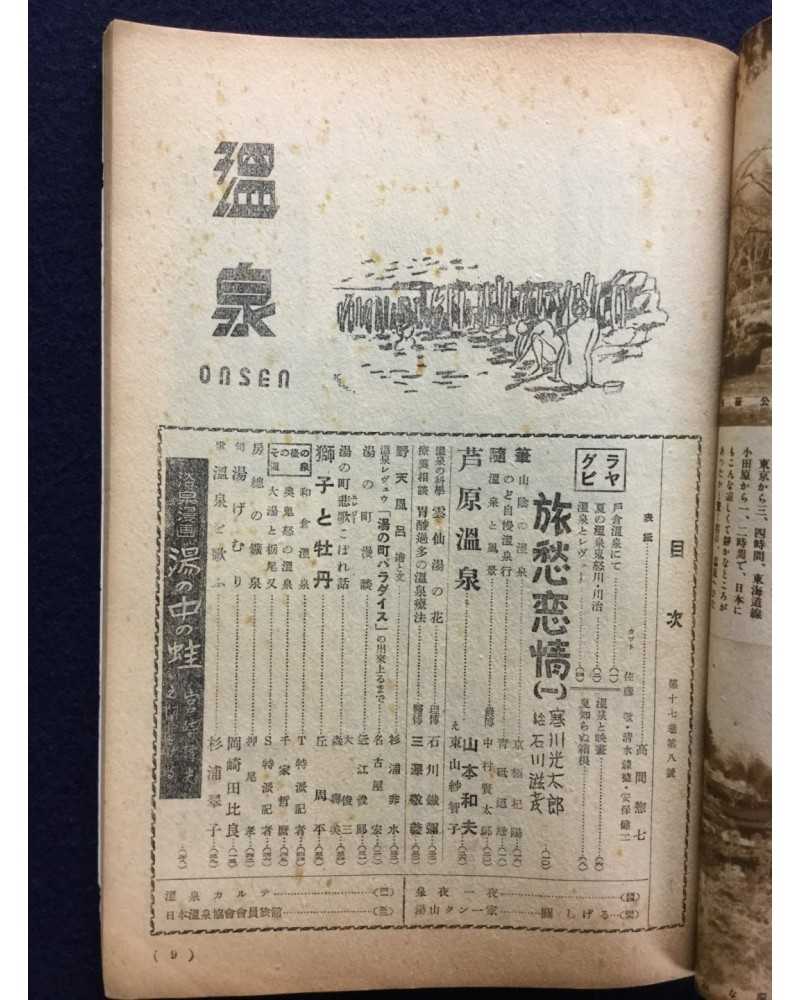 温
泉
ONSEN
目次
第十七卷第八號
表紙 高間惣七
カット 佐藤敬・清水錬徳・安保健二
グラビヤ
戸倉温泉にて
夏の温泉鬼怒川・川治
温泉とレヴュー
温泉と映畫
夏知らぬ箱根
旅愁恋情(一) 寒川光太郎
絵 石川滋彦
隨筆
山陰の温泉 京極杞陽
のど自慢温泉行
温泉と風景 中村賢太郎
芦原温泉 山本和夫
え 東山紗智子
温泉の科學 雲仙湯の花 理博 石川鐵彌
療養相談 胃酸過多の温泉療法 醫博 三澤敬義
野天風呂 繪と文 杉浦非水
温泉レヴュウ「湯の町パラダイス」の出來上るまで 名古屋宏
湯の町漫談 近江俊郎
大俊三
湯の町悲歌こぼれ話 森壽美
獅子と牡丹 丘周平
その後の温泉
和倉温泉 T特派記者
奥鬼怒の温泉 千家哲麿
大湯と栃尾又 S特派記者
房總の鑛泉 押尾孝
俳句 湯げむり 岡崎田比良
温泉と歌ふ 杉浦翠子
温泉漫画 湯の中の蛙
温泉カルテ
日本温泉協會會員旅館
泉夜一夜
湯山タン一家 關しげる
(9)
東京から三、四時間、東海道線
小田原から一、二時間で、日本に
もこんな涼しくて靜かなところが